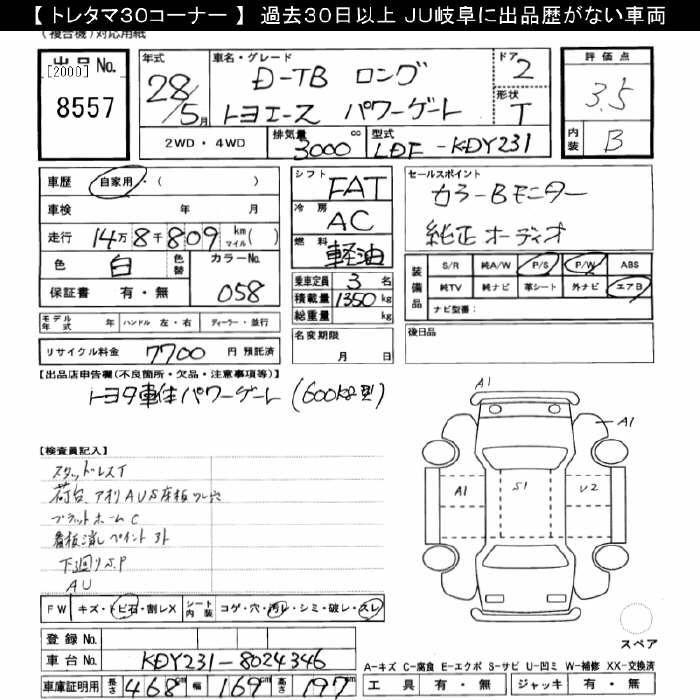 【 トレタマ30コーナー 】 過去30日以上 JU岐阜に出品歴がない車両
(複合機)対応用紙
出品 No.
[2000]
8557
年式
28/5月
車名・グレード
D-TB ロング
トヨエース パワーゲート
ドア
2
形状
T
評価点
3.5
内装
B
2WD・4WD
排気量
3000 cc
型式
LDF-KDY231
車歴 自家用・( )
車検 年 月
走行 14万8千809 km マイル( )
色 白 色替
カラーNo.
058
保証書 有・無
モデル年式 年 ハンドル 左・右 ディーラー・並行
リサイクル料金 7700 円 預託済
シフト FAT
冷房 AC
燃料 軽油
乗車定員 3 名
積載量 1350 kg
総重量 kg
名変期限
月 日
セールスポイント
カラーBモニター
純正オーディオ
装備品
S/R 純A/W P/S P/W ABS
純TV 純ナビ 革シート 外ナビ エアB
ナビ型番:
後日品
【出品店申告欄(不良箇所・欠品・注意事項等)】
トヨタ車体パワーゲート (600kg型)
【検査員記入】
スタッドレスT
荷台、アオリAUS床板ワレ穴
プラットホームC
看板消しペイント外
下廻りS.P
AU
A1
A1
A1
S1
U2
FW キズ・トビ石・割レX
シート内装 コゲ・穴・汚レ・シミ・破レ・スレ
スペア
登録 No.
車台 No. KDY231-8024346
車庫証明用 長さ 468cm 幅 169cm 高さ 197cm
A-キズ C-腐食 E-エクボ S-サビ U-凹ミ W-補修 XX-交換済
工具 有・無 ジャッキ 有・無